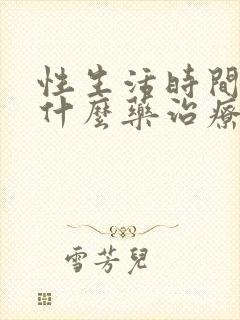 性生活時間
什麼藥治療
雪芳兒